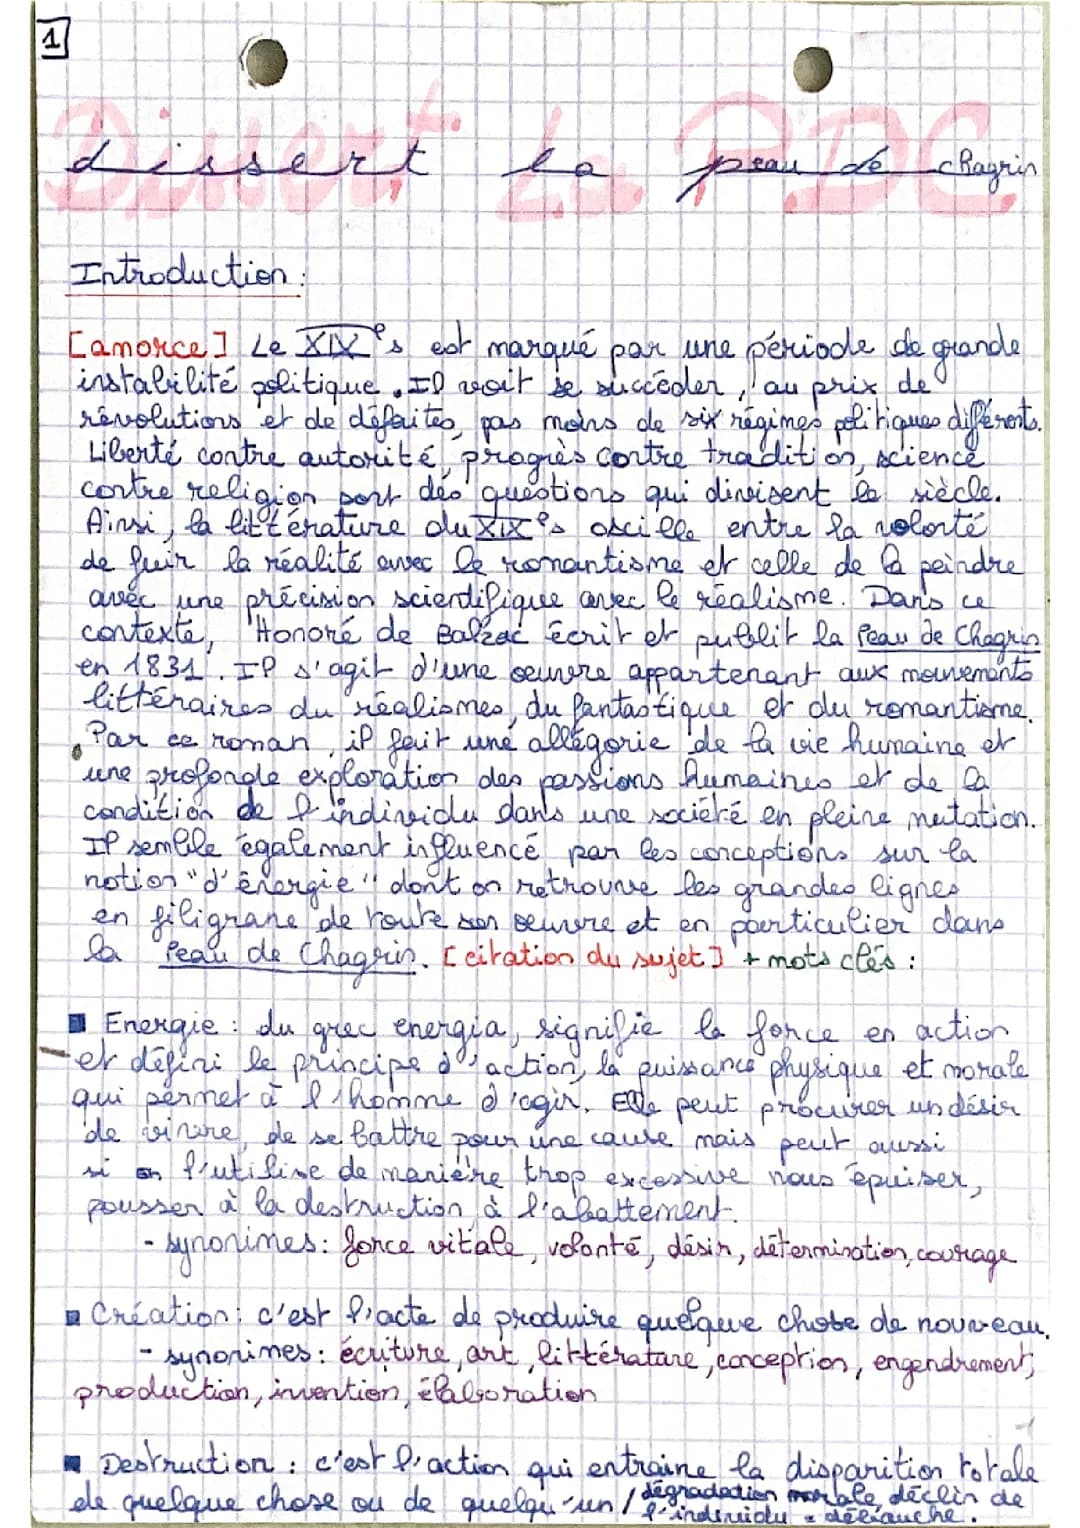 1
Dissert La PDC
dissert la peau de chagrin
Introduction :
[amorce] Le XIXe s est marqué par une période de grande
instabilité politique. Il voit se succéder, au prix de
révolutions et de défaites, pas moins de six régimes politiques différents.
Liberté contre autorité, progrès contre tradition, science
contre religion sont des questions qui divisent le siècle.
Ainsi, la littérature du XIXe s oscille entre la volonté
de fuir la réalité avec le romantisme et celle de la peindre
avec une précision scientifique avec le réalisme. Dans ce
contexte, Honoré de Balzac écrit et publit la Peau de Chagrin
en 1831. Il s'agit d'une oeuvre appartenant aux mouvements
littéraires du réalismes, du fantastique et du romantisme.
Par ce roman, il fait une allégorie de la vie humaine et
une profonde exploration des passions humaines et de la
condition de l'individu dans une société en pleine mutation.
Il semble également influencé par les conceptions sur la
notion "d'énergie" dont on retrouve les grandes lignes
en filigrane de toute son oeuvre et en particulier dans
la Peau de Chagrin. [citation du sujet] + mots clés :
■ Energie : du grec energia, signifie la force en action
et défini le principe d'action, la puissance physique et morale
qui permet à l'homme d'agir. Elle peut procurer un désir
de vivre, de se battre pour une cause mais peut aussi
si on l'utilise de manière trop excessive nous épuiser,
pousser à la destruction, à l'abattement.
- synonimes : force vitale, volonté, désir, détermination, courage
■ Création : c'est l'acte de produire quelque chose de nouveau.
- synonimes : écriture, art, littérature, conception, engendrement,
production, invention, élaboration
■ Destruction : c'est l'action qui entraine la disparition totale
de quelque chose ou de quelqu'un / dégradation morale, déclin de
l'individu = débauche.